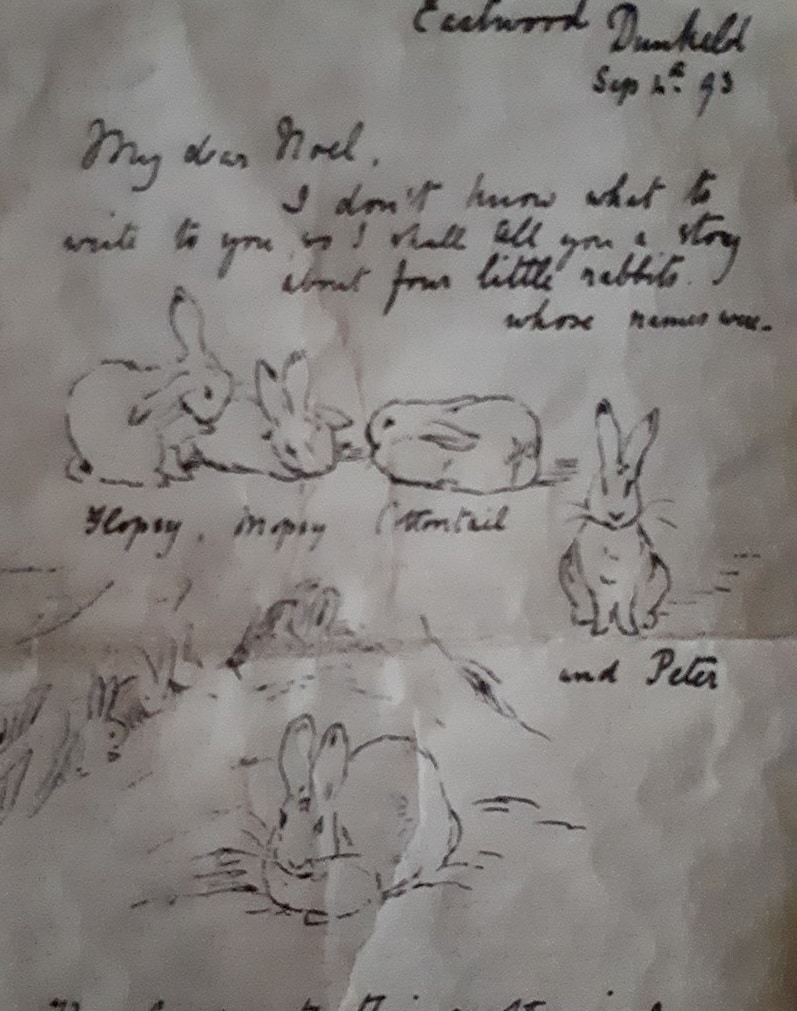 Eastwood Dunkeld
Sep 4th 93
My dear Noel,
I don't know what to
write to you, so I shall tell you a story
about four little rabbits.
whose names were.
Flopsy, Mopsy Cottontail
and Peter